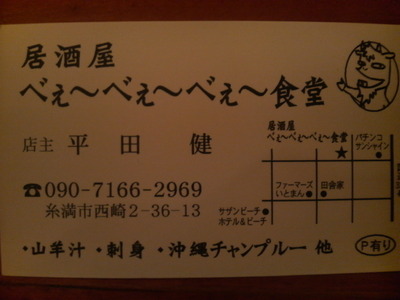 居酒屋
べぇ～べぇ～べぇ～食堂
店主 平田 健
☎090-7166-2969
糸満市西崎2-36-13
居酒屋
べぇ～べぇ～べぇ～食堂
パチンコ
サンシャイン
ファーマーズ
いとまん
田舎家
サザンビーチ
ホテル&ビーチ
・山羊汁 ・刺身 ・沖縄チャンプルー 他
P有り